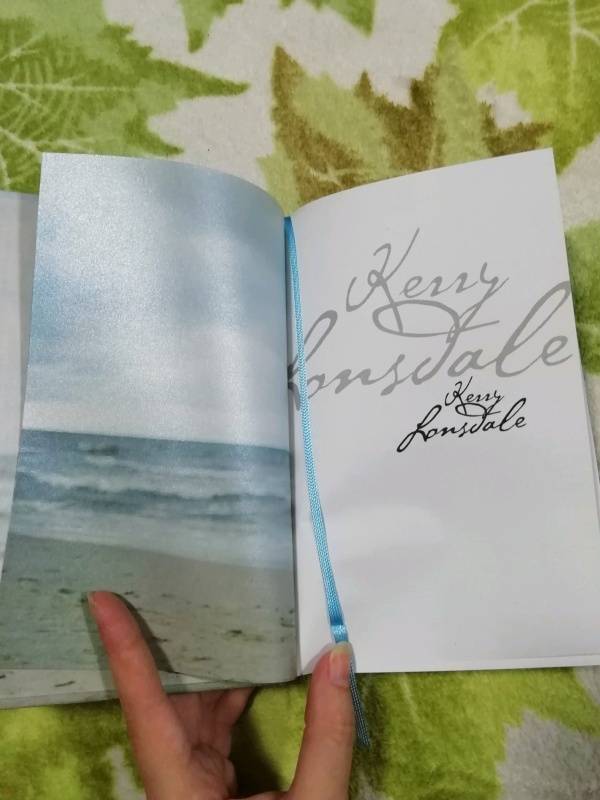 Kerry
Lonsdale
Kerry
Lonsdale